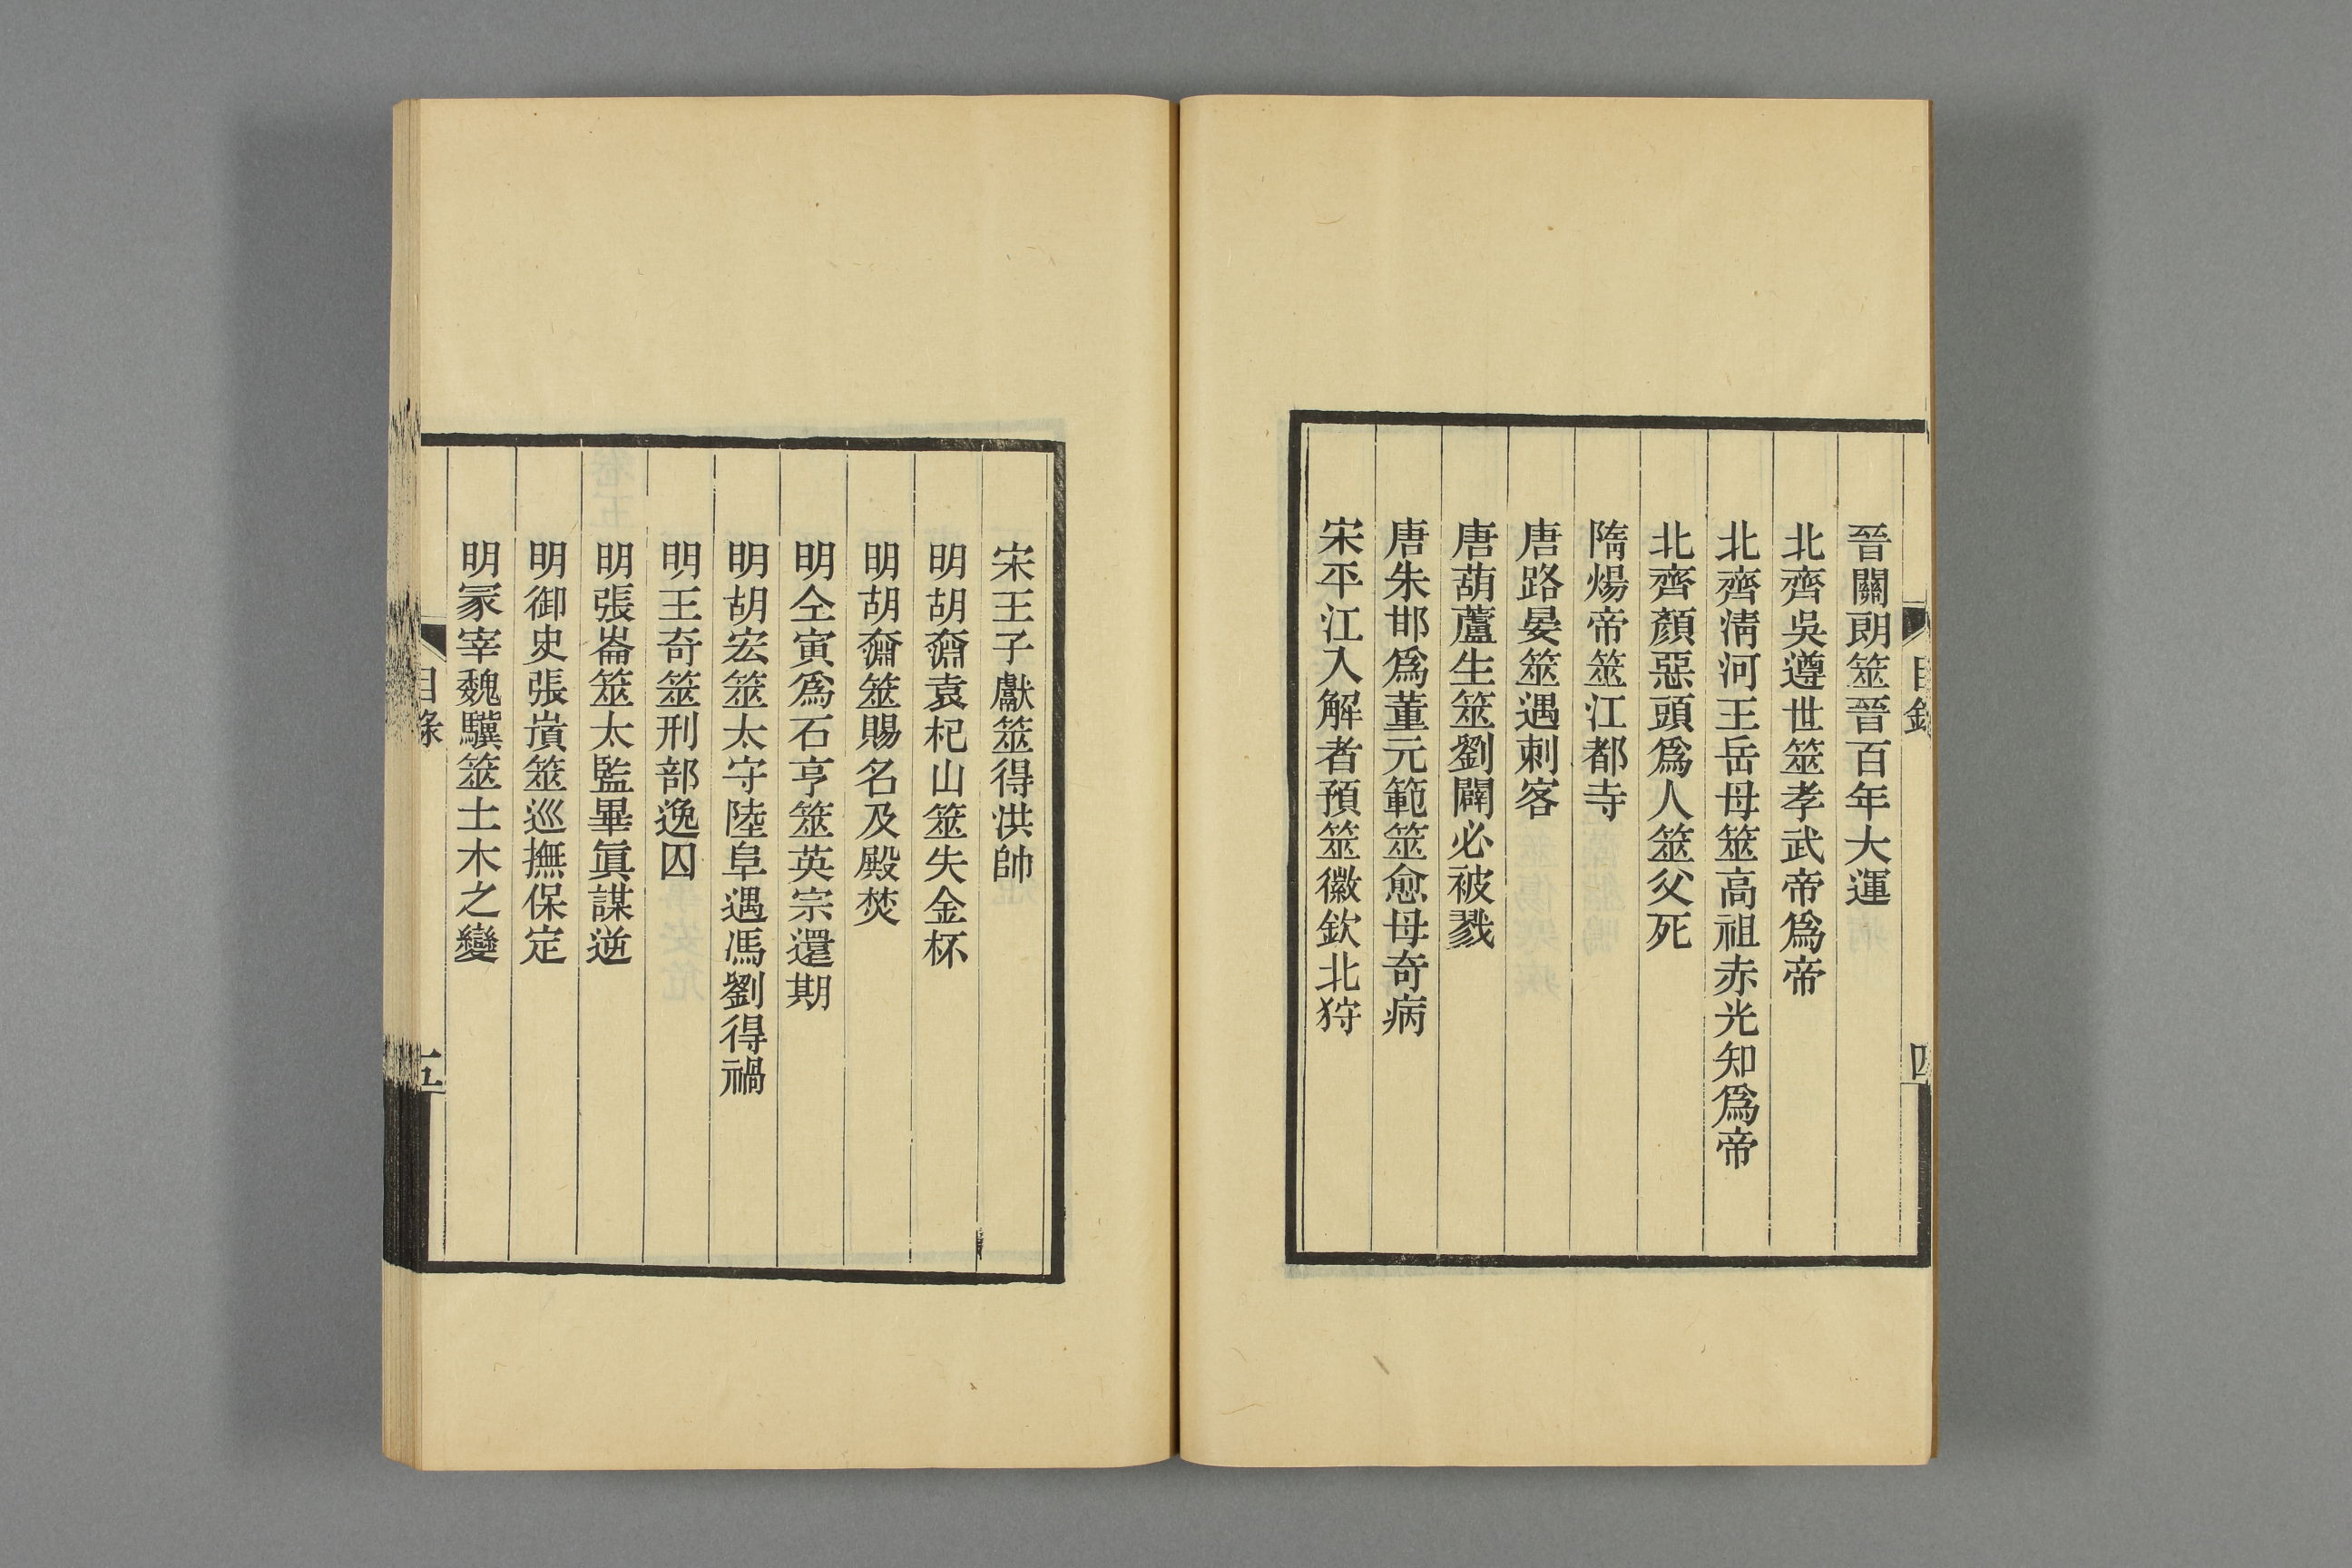 目錄
四
晉關朗筮晉百年大運
北齊吳遵世筮孝武帝爲帝
北齊淸河王岳母筮高祖赤光知爲帝
北齊顏惡頭爲人筮父死
隋煬帝筮江都寺
唐路晏筮遇刺客
唐葫蘆生筮劉闢必被戮
唐朱邯爲董元範筮愈母奇病
宋平江入解者預筮徽欽北狩
宋王子獻筮得洪帥
明胡奫袁杞山筮失金杯
明胡奫筮賜名及殿焚
明仝寅爲石亨筮英宗還期
明胡宏筮太守陸阜遇馮劉得禍
明王奇筮刑部逸囚
明張崙筮太監畢眞謀逆
明御史張嵿筮巡撫保定
明冢宰魏驥筮土木之變
目錄
五